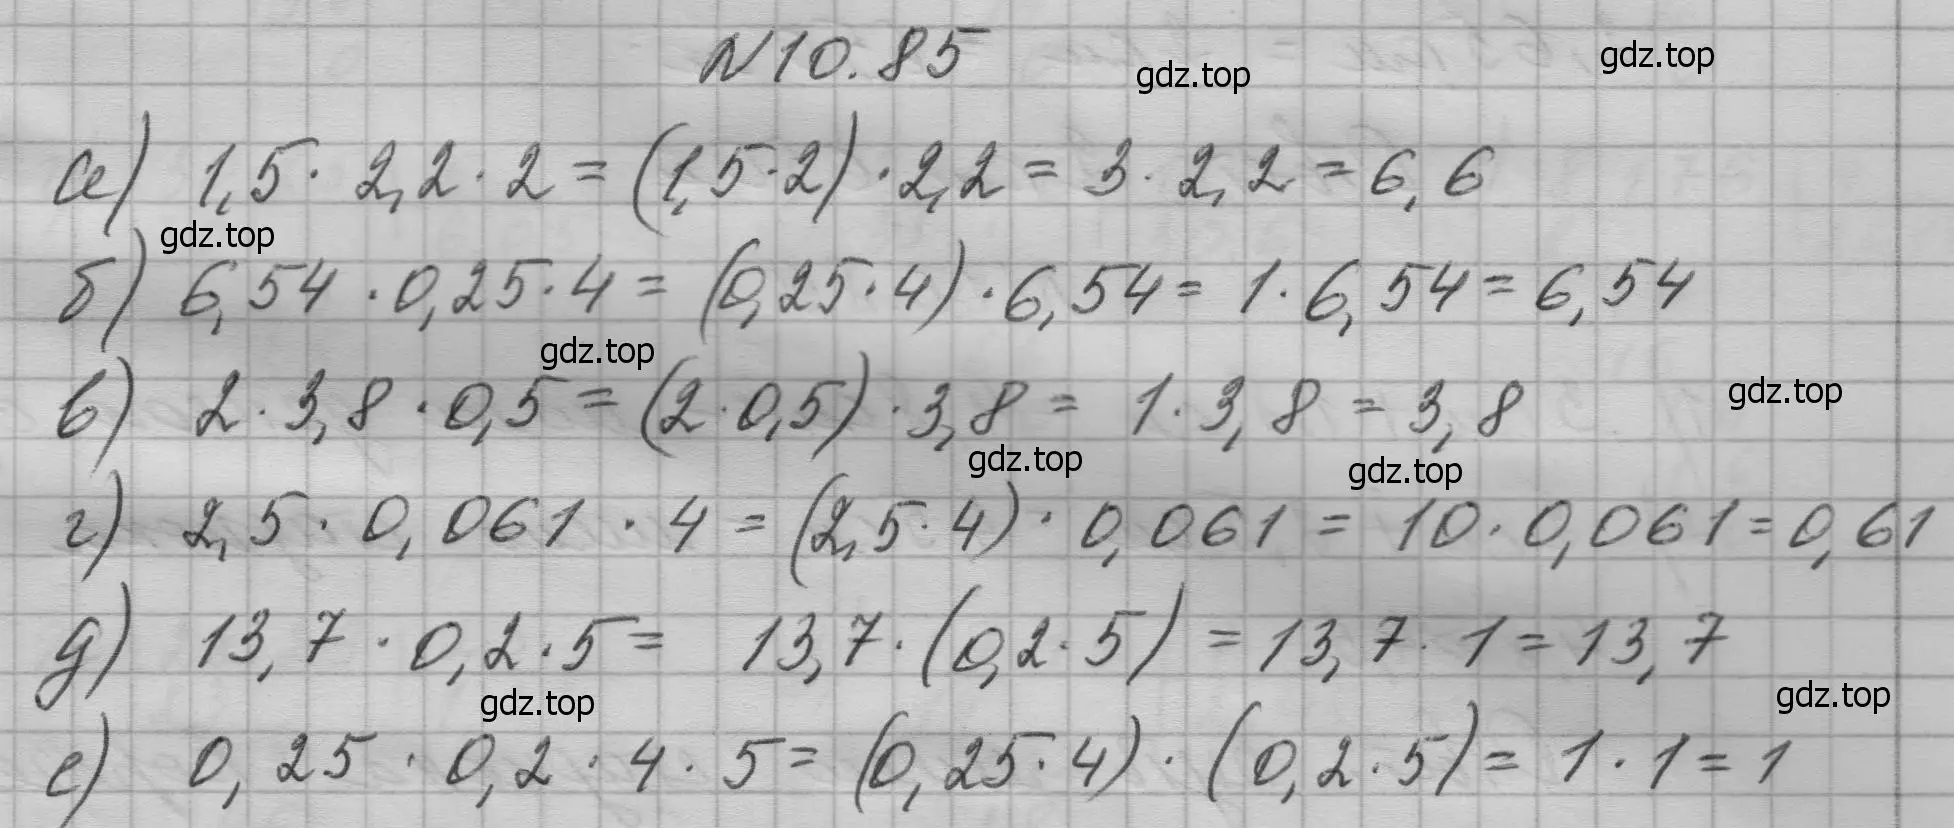 N10.85
gdz.top
gdz.top
а) 1,5 · 2,2 · 2 = (1,5 · 2) · 2,2 = 3 · 2,2 = 6,6
gdz.top
б) 6,54 · 0,25 · 4 = (0,25 · 4) · 6,54 = 1 · 6,54 = 6,54
gdz.top
gdz.top
в) 2 · 3,8 · 0,5 = (2 · 0,5) · 3,8 = 1 · 3,8 = 3,8
gdz.top
gdz.top
г) 2,5 · 0,061 · 4 = (2,5 · 4) · 0,061 = 10 · 0,061 = 0,61
д) 13,7 · 0,2 · 5 = 13,7 · (0,2 · 5) = 13,7 · 1 = 13,7
gdz.top
gdz.top
е) 0,25 · 0,2 · 4 · 5 = (0,25 · 4) · (0,2 · 5) = 1 · 1 = 1